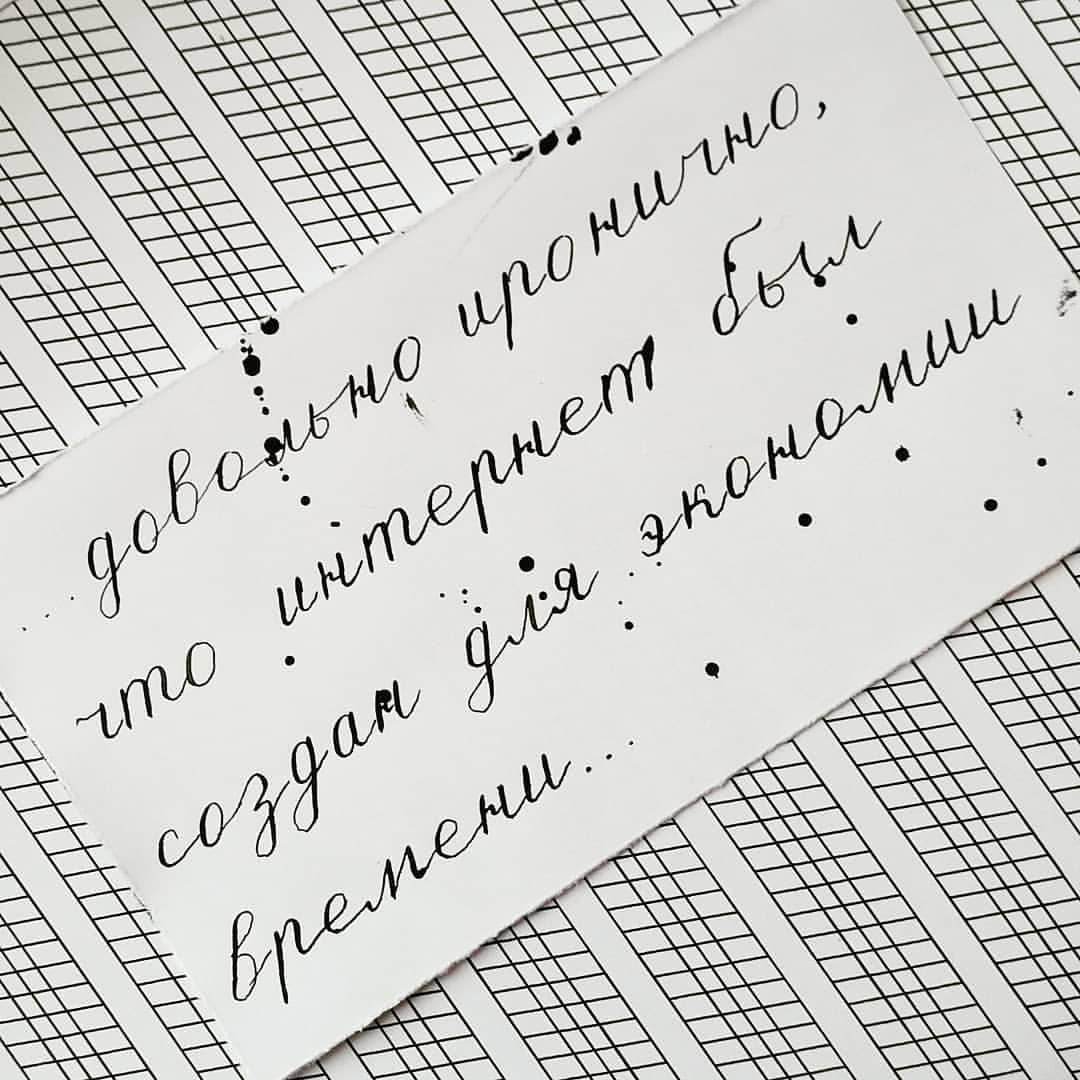 ...довольно иронично,
что интернет был
создан для экономии
времени...